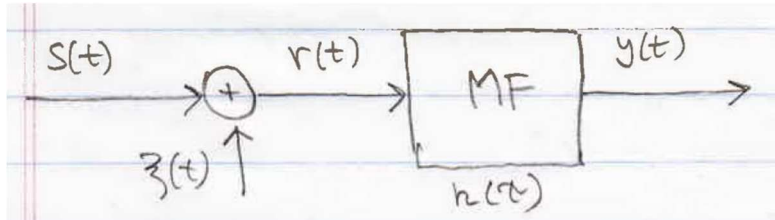 S(t)
r(t)
MF
y(t)
+
ξ(t)
h(t)